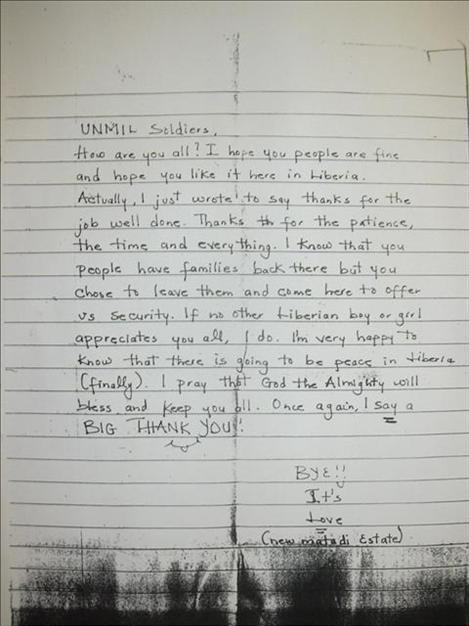 UNMIL Soldiers,
How are you all? I hope you people are fine
and hope you like it here in Liberia.
Actually, I just wrote to say thanks for the
job well done. Thanks th for the patience,
the time and everything. I know that you
people have families back there but you
chose to leave them and come here to offer
us security. If no other Liberian boy or girl
appreciates you all, I do. I'm very happy to
know that there is going to be peace in Liberia
(finally). I pray that God the Almighty will
bless and keep you all. Once again, I say a
BIG THANK YOU!!
BYE!!
It's
Love
(new matadi Estate)